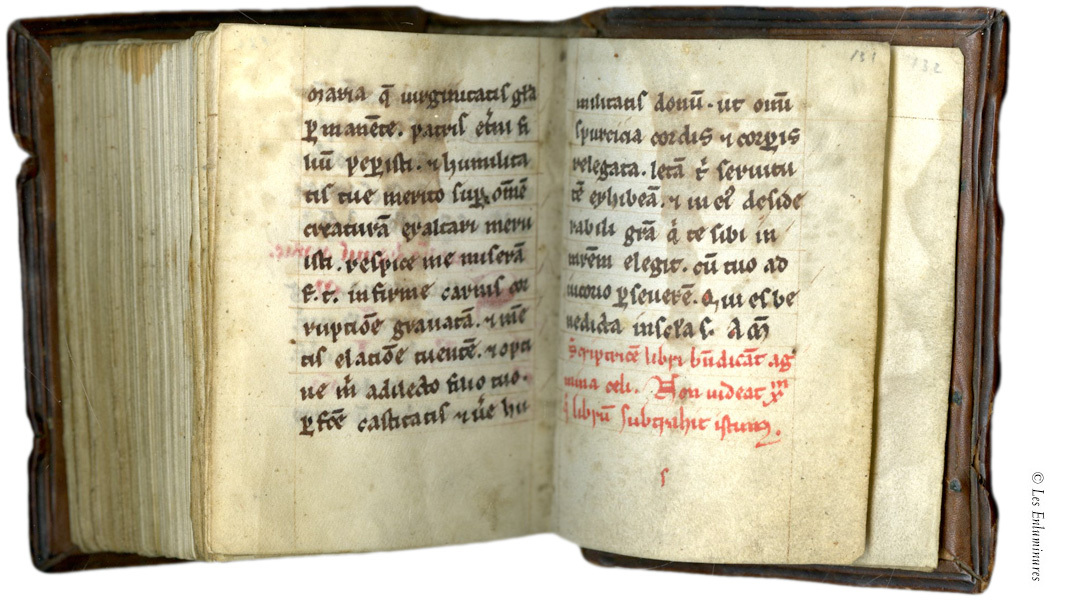 oraria q̄ uirginitatis gr̄a
ꝑmanēte. patris et̄ni fi
liū peꝑisti. ⁊ humilita
tis tue merito suꝑ om̄ē
creaturā exaltari meru
isti. respice me miserā
f. t. infirme carnis cor
ruptiōe grauatā. ⁊ mē
tis elatiōe tuentē. ⁊ opti
ne m̄ a dilecto filio tuo.
ꝑfc̄e castitatis ⁊ ūe hu
militatis donū. ut om̄i
spurcicia cordis ⁊ corꝑis
relegata. letā t̄ seruitu
tē exhibeā. ⁊ in eiꝰ deside
rabili gr̄a q̄ te sibi in
mr̄em elegit. cū tuo ad
iutorio ꝑseuerē. Qui es be
nedicta in scl̄a s. Am̄
Scriptricē libri bn̄dicāt ag
mina celi. Non uideat xp̄m
q̄ librū subtrahit istum.
131
132
© Les Enluminures